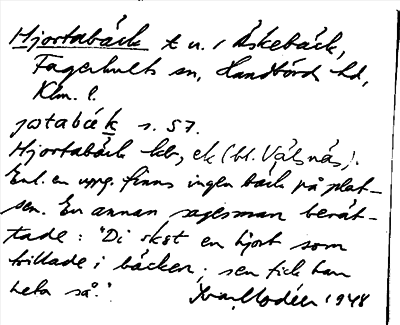 Hjortabäck t u. i Äskebäck,
Fagerhults sn, Handbörd hd,
Klm. l.
jotabæk s. 57.
Hjortabäck kb, ek (bl. Välsnäs).
Enl. en uppg. finns ingen bäck på plat-
sen. En annan sagesman berät-
tade: "Di sköt en hjort som
trillade i bäcken; sen fick han
heta så".
Ivar Modéer 1948